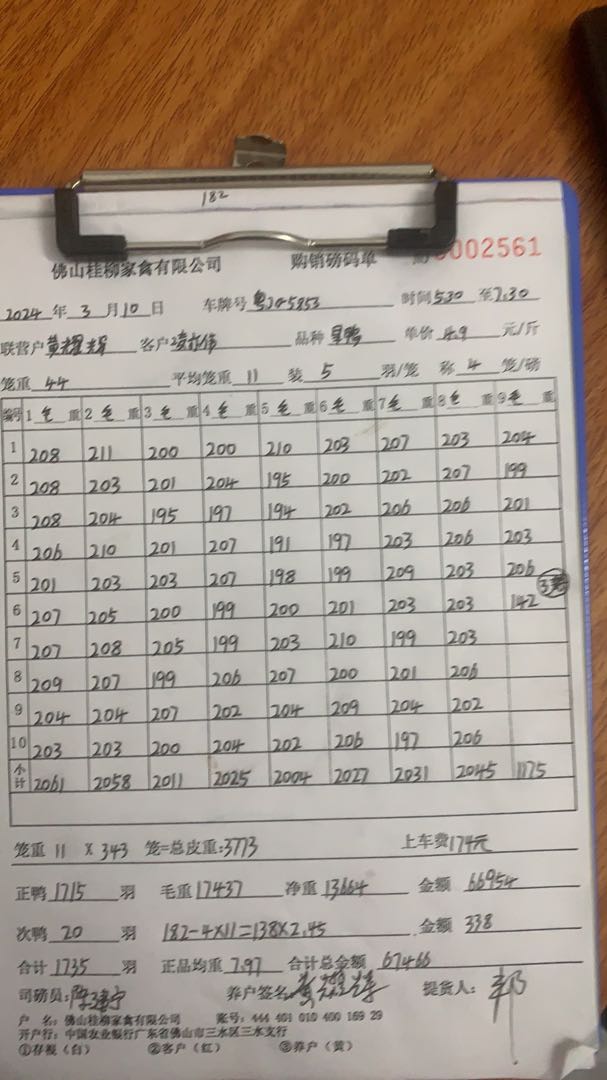 182
佛山桂柳家禽有限公司 购销磅码单 0002561
2024 年 3 月 10 日 车牌号 粤J05853 时间 530 至 7:30
联营户 黄耀辉 客户 品种 单价 4.9 元/斤
笼重 44 平均笼重 11 装 5 羽/笼 称 4 笼/磅
编号 1 毛 重 2 毛 重 3 毛 重 4 毛 重 5 毛 重 6 毛 重 7 毛 重 8 毛 重 9 毛 重
1 208 211 200 200 210 203 207 203 204
2 208 203 201 204 195 200 202 207 199
3 208 204 195 197 194 202 206 206 201
4 206 210 201 207 191 197 203 206 203
5 201 203 203 207 198 199 209 203 206
6 207 205 200 199 200 201 203 203 142 3笼
7 207 208 205 199 203 210 199 203
8 209 207 199 206 207 200 201 206
9 204 204 207 202 204 209 204 202
10 203 203 200 204 202 206 197 206
小计 2061 2058 2011 2025 2004 2027 2031 2045 1175
笼重 11 X 343 笼=总皮重:3773 上车费174元
正鸭 1715 羽 毛重 17437 净重 13664 金额 66954
次鸭 20 羽 182-4×11=138×2.45 金额 338
合计 1735 羽 正品均重 7.97 合计总金额 67466
司磅员: 养户签名: 黄耀辉 提货人: 邦
户 名: 佛山桂柳家禽有限公司 账号: 444 401 010 400 169 29
开户行: 中国农业银行广东省佛山市三水区三水支行
①存根(白) ②客户(红) ③养户(黄)